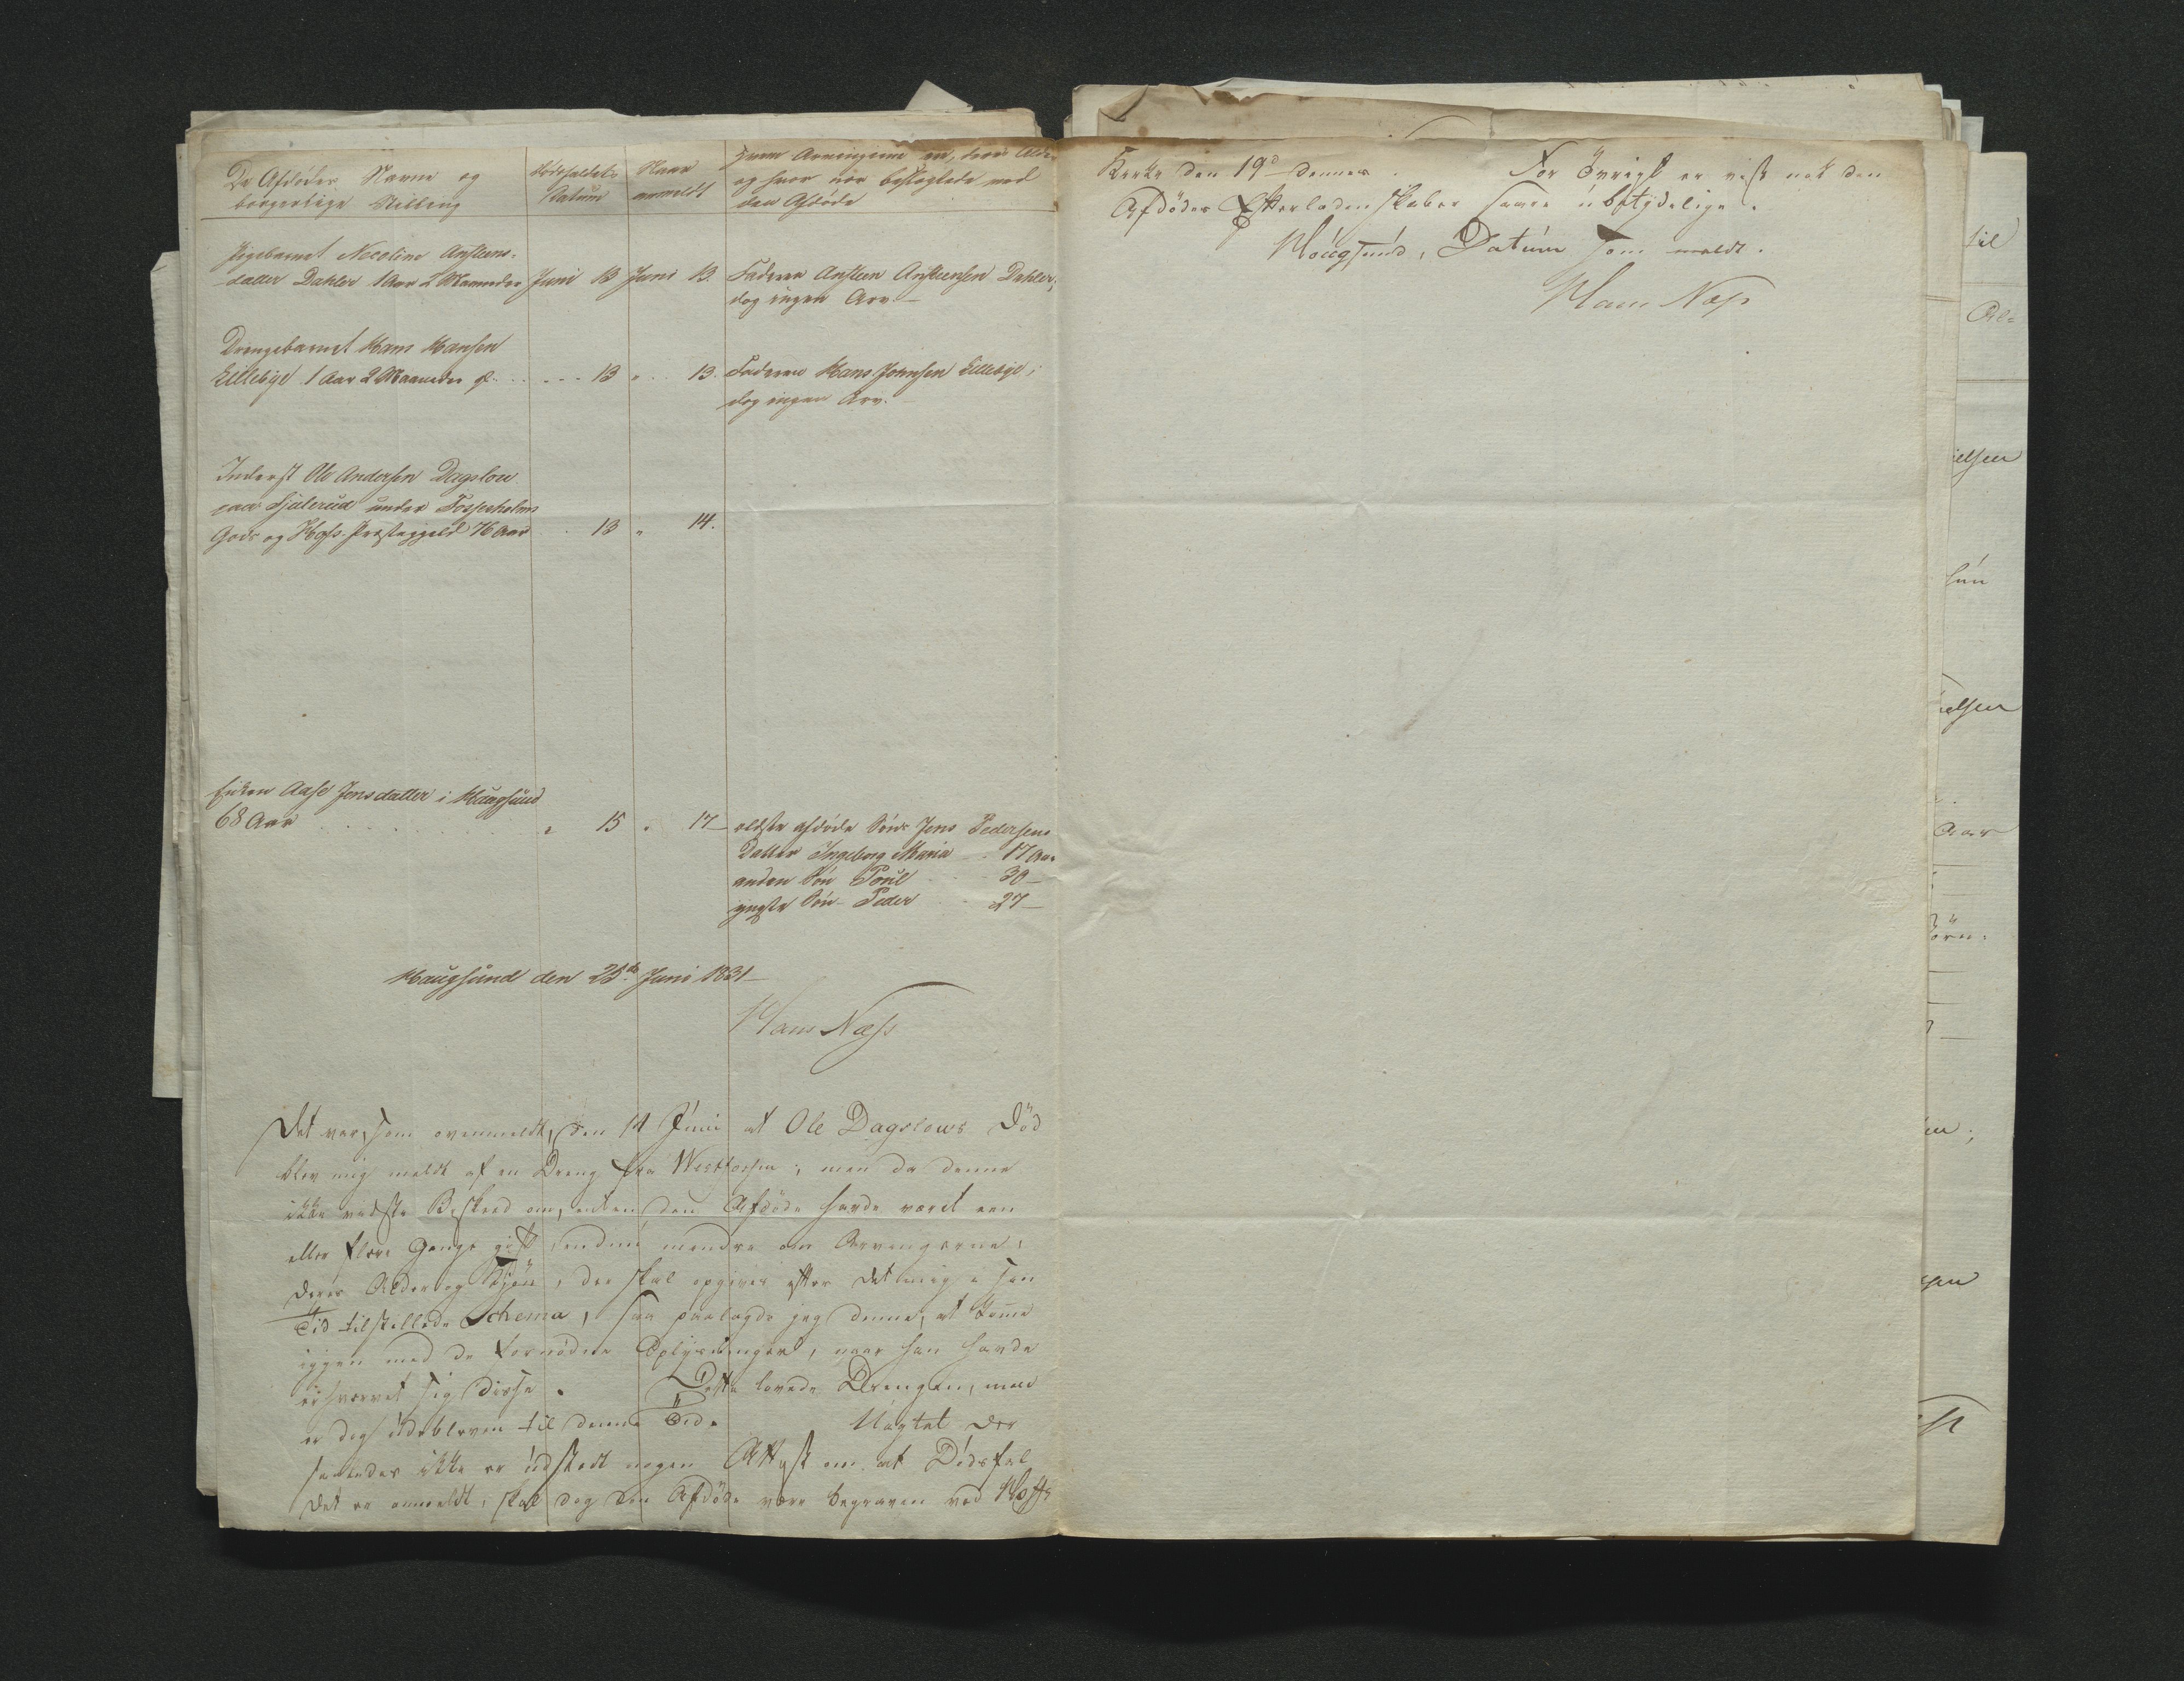 De Afdødes Navne og
borgerlige Stilling
Dødsfaldets
Datum
Naar
anmeldt
Hvem Arvingerne er, deres Alder
og hvor nær beslægtede med
den Afdøde
Pigebarnet Nicoline Anstens-
datter Dahler 1 Aar 2 Maaneder Juni 13 Juni 13. Faderen Ansten Anstensen Dahler;
dog ingen Arv.
Drengebarnet Hans Hansen
Lillebye 1 Aar 2 Maaneder gl. 13 " 13. Faderen Hans Johnsen Lillebye;
dog ingen Arv.
Inderst Ole Andersen Dagslou
paa under Fossesholms
Gods og Præstegjeld 76 Aar 13 " 14.
Enken Aase Jonsdatter i Haugsund
68 Aar " 15 " 17 ældste afdøde Søns Jens Pedersens
Datter Ingeborg Maria 17 Aar
anden Søn Poul 30
yngste Søn Peder 27
Haugsund den 25de Juni 1831
Hans Næss
Det var, som ovenmeldt, den 14 Juni at Ole Dagslous Død
blev mig meldt af en Dreng fra Westfossen; men da denne
ikke vidste Beskeed om, enten den Afdøde havde været een
eller flere Gange gift, endnu mendre om Arvingerne,
deres Alder og Kjøn, der skal opgives efter det mig i sin
Tid tilstillede Schema, saa paalagde jeg denne, at komme
igjen med de fornødne Oplysninger, naar han havde
erhvervet sig disse. Dette lovede Drengen, men
er dog udebleven til denne Tid. Uagtet der
saaledes ikke er udstedt nogen Attest om at Dødsfal
det er anmeldt, skal dog den Afdøde være begraven ved
Kirke den 19de dennes. For Øvrigt er vist nok den
Afdødes Efterladenskaber saare ubetydelige.
Hougsund, Datum som meldt.
Hans Næss